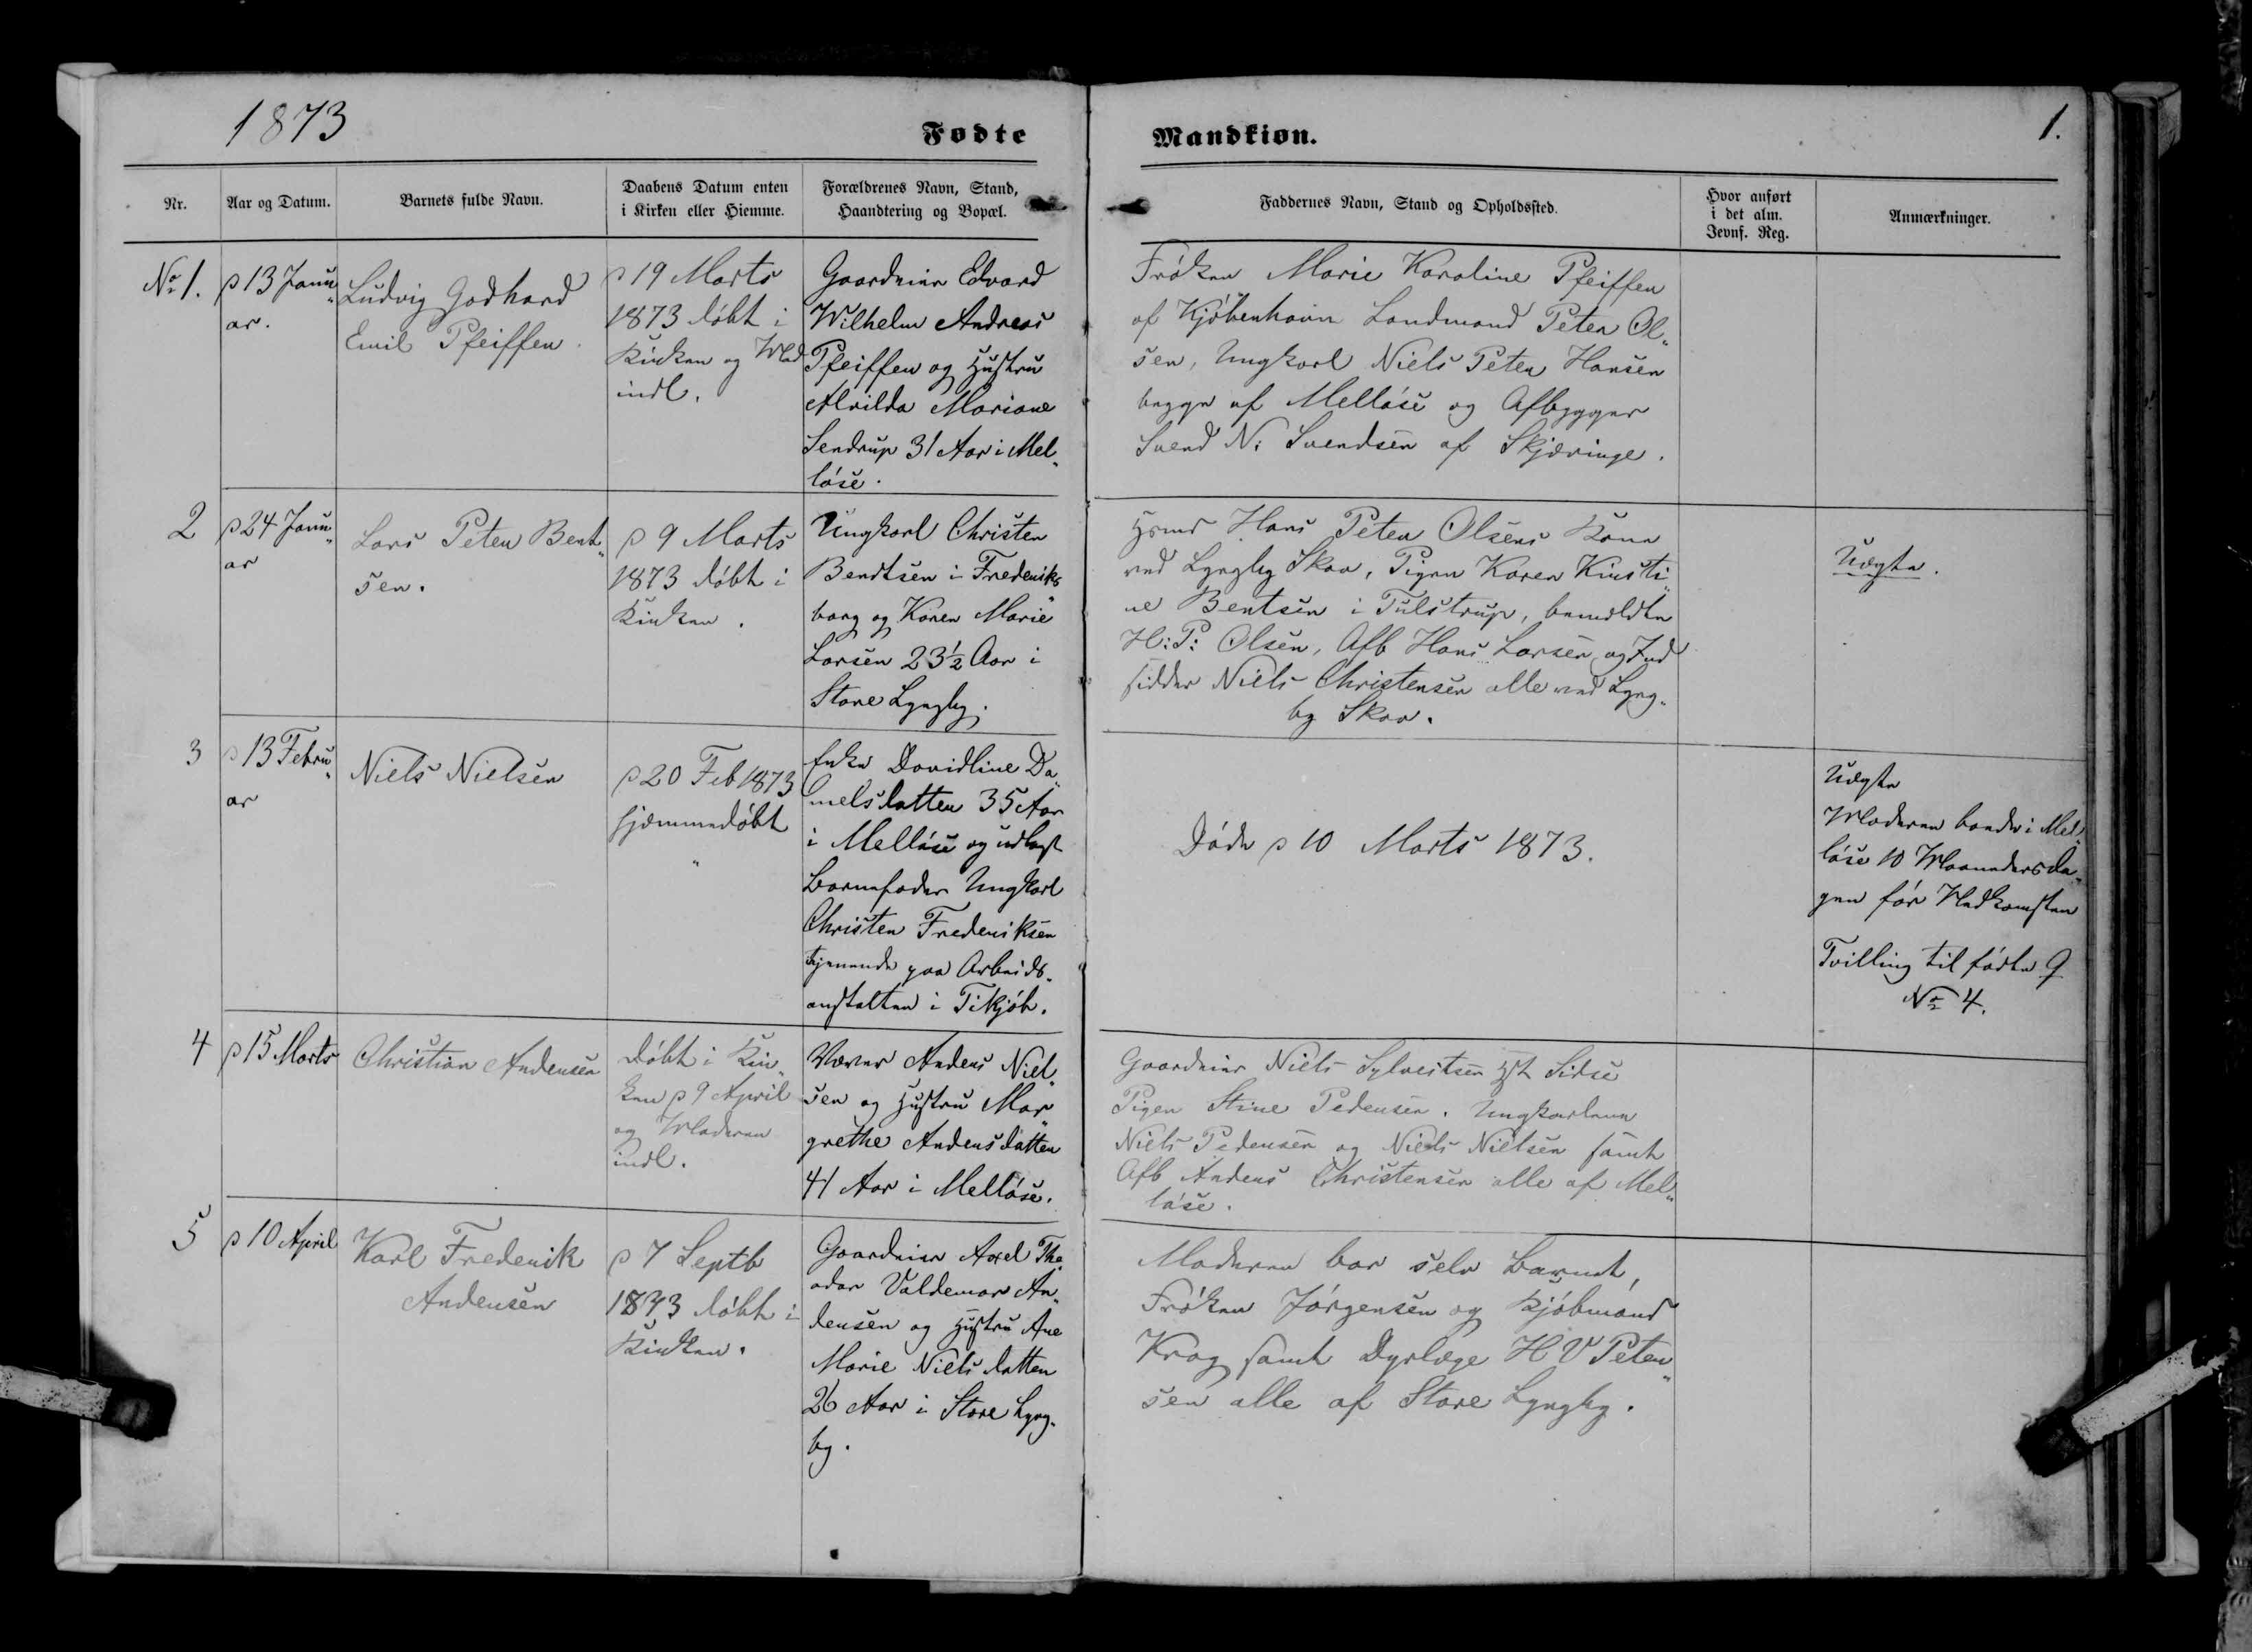 1873
Fødte
Mandkiøn.
1.
Nr.
Aar og Datum.
Barnets fulde Navn.
Daabens Datum enten
i Kirken eller Hiemme.
Forældrenes Navn, Stand,
Haandtering og Bopæl.
Faddernes Navn, Stand og Opholdssted.
Hvor anført
i det alm.
Jevnf. Reg.
Anmærkninger.
No 1.
d 13 Janu„
ar.
Ludvig Godhard
Emil Pfeiffer.
d 19 Marts
1873 døbt i
Kirken og Mod
indl.
Gaardeier Edvard
Wilhelm Andreas
Pfeiffer og Hustru
Alvilda Mariane
Lendrup 31 Aar i Mel„
løse.
Frøken Marie Karoline Pfeiffer
af Kjøbenhavn Landmand Peter Ol„
sen, Ungkarl Niels Peter Hansen
begge af Melløse og Aftbygger
Svend N: Svendsen af Skjævinge.
2
d 24 Janu„
ar
Lars Peter Bent„
sen.
d 9 Marts
1873 døbt i
Kirken.
Ungkarl Christen
Bendtsen i Frederiks„
borg og Karen Marie
Larsen 23½ Aar i
Store Lyngby.
Hsmd Hans Peter Olsens Kone
ved Lyngby Skov, Pigen Karen Kirsti„
ne Bentsen i Tulstrup, bemeldte
H: P: Olsen, Afb Hans Larsen og Ind
sidder Niels Christensen alle ved Lyng„
by Skov.
Uægte.
3
d 13 Febru„
ar
Niels Nielsen
d 20 Feb 1873
hjemmedøbt
Enke Davidline Da„
nielsdatter 35 Aar
i Melløse og udlagt
Barnefader Ungkarl
Christen Frederiksen
tjenende paa Arbeids„
anstalten i Tikjøb.
Døde d 10 Marts 1873.
Uægte
Moderen boede i Mel„
løse 10 Maanedersda„
gen før Nedkomsten
Tvilling til fødte Q
No 4.
4
d 15 Marts
Christian Andersen
Døbt i Kir„
ken d 9 April
og Moderen
indl.
Væver Anders Niel„
sen og Hustru Mar„
grethe Andersdatter
41 Aar i Melløse.
Gaardeier Niels Sylvestsen Hst Sidse
Pigen Stine Pedersen. Ungkarlene
Niels Pedersen og Niels Nielsen samt
Afb Anders Christensen alle af Mel„
løse.
5
d 10 April
Karl Frederik
Andersen
d 7 Septb
1873 døbt i
Kirken.
Gaardeier Axel The„
odor Valdemar An„
dersen og Hustru Ane
Marie Niels datter
26 Aar i Store Lyng„
by.
Moderen bar selv Barnet,
Frøken Jørgensen og Kjøbmand
Krag samt Dyrlæge H V Peter„
sen alle af Store Lyngby.